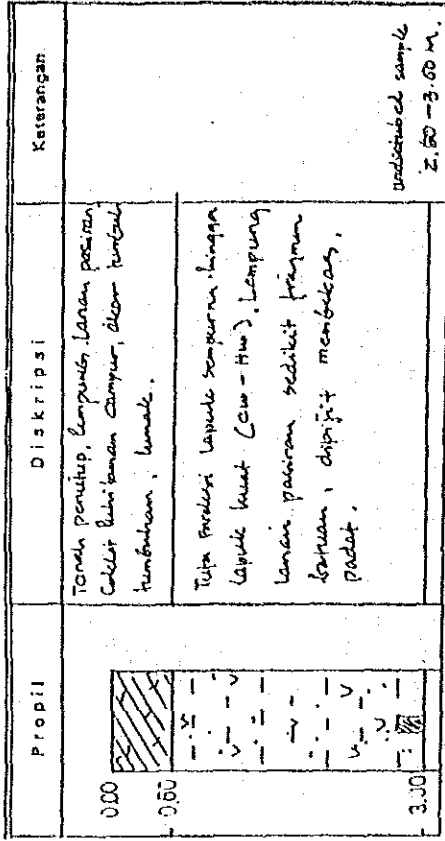 Propil
Diskripsi
Keterangan
0.00
0.60
3.00
Tanah penutup, lempung, lanau pasiran
Coklat campur, akar
tumbuhan, lunak.
Tupa lapuk sempurna hingga
lapuk kuat (CW - HW). Lempung
lanau pasiran sedikit fragmen
batuan, dipijit membekas,
padat.
undisturbed sample
2.50 - 3.00 m.